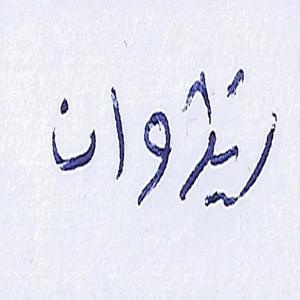 ریژوان